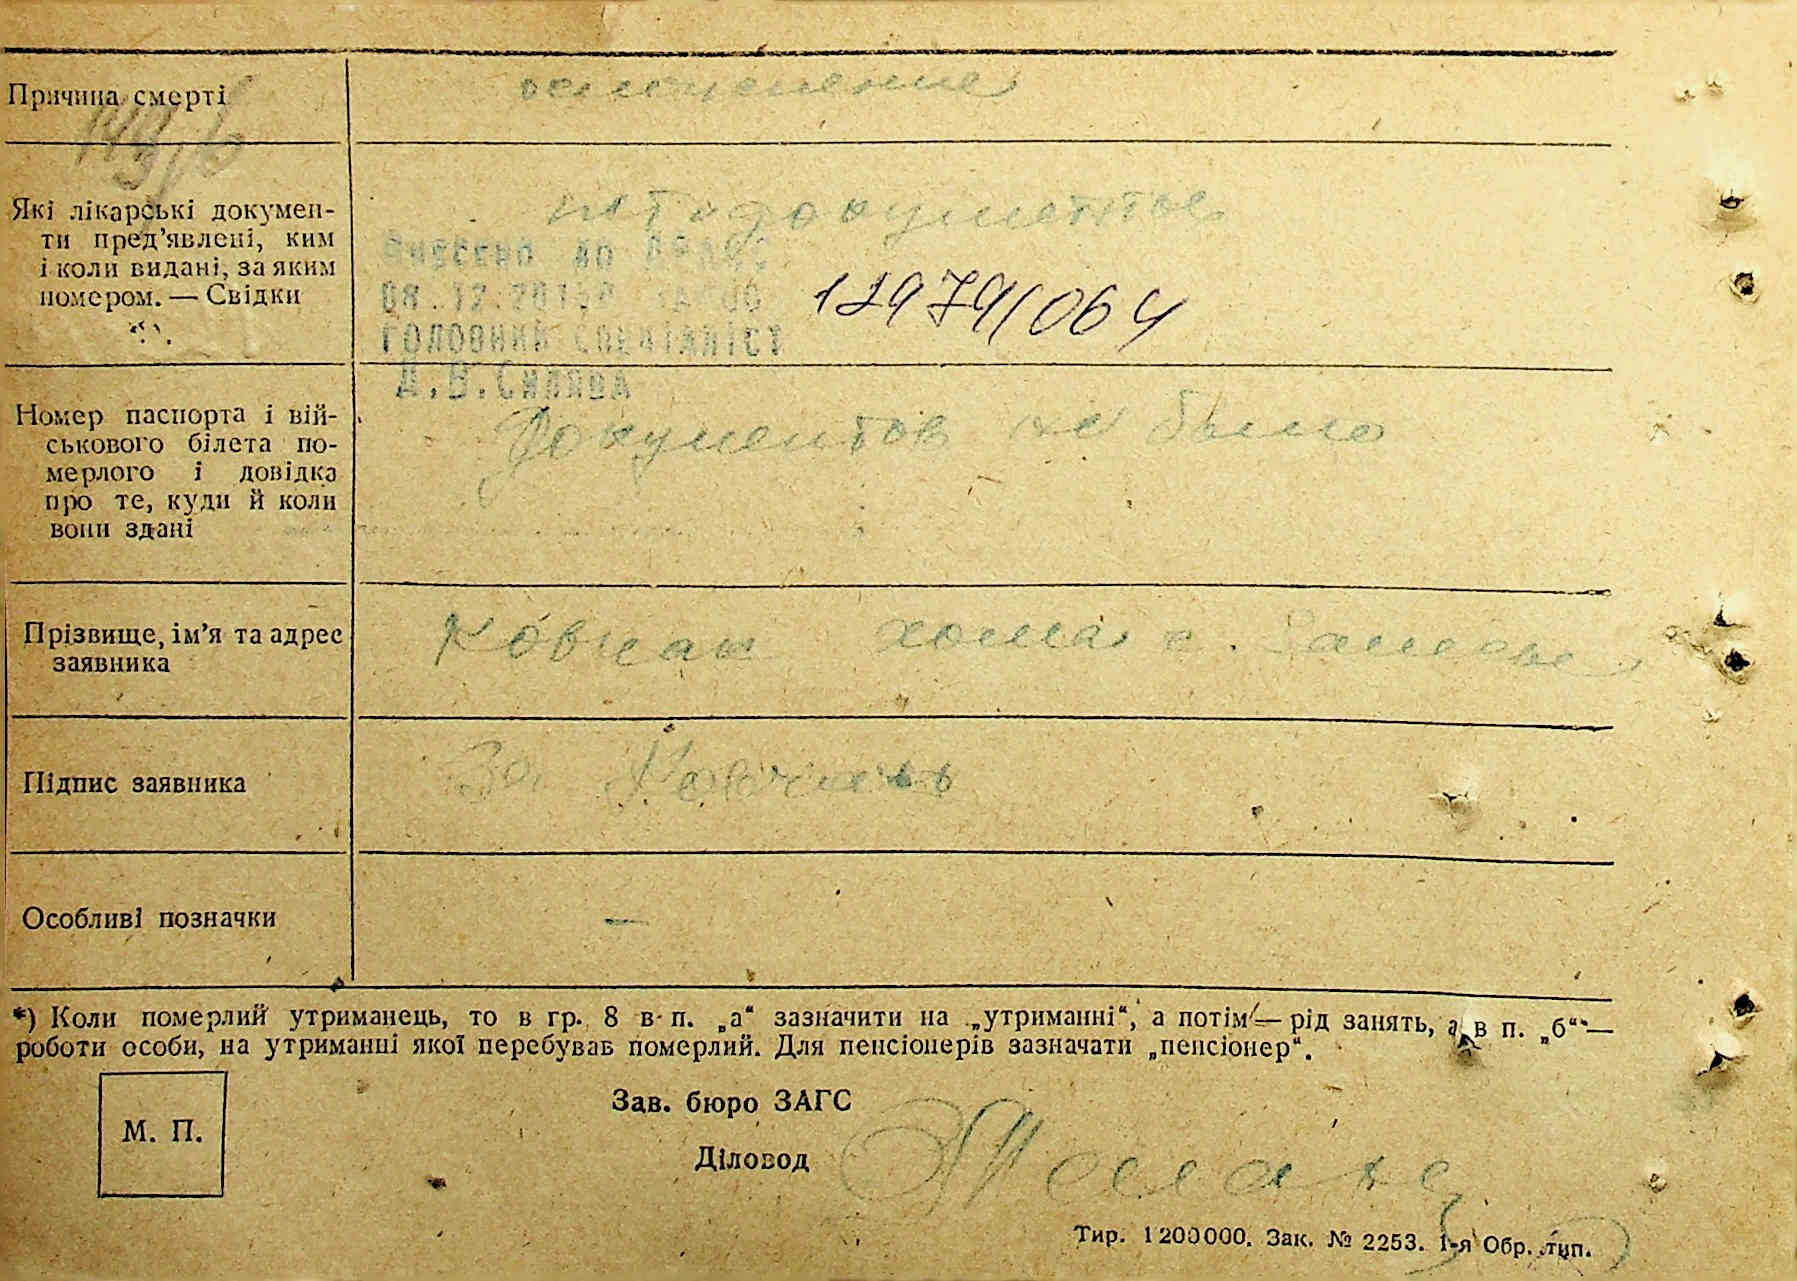 Причина смерті
Які лікарські докумен-
ти пред’явлені, ким
і коли видані, за яким
номером. — Свідки
нет документов
Внесено до
08.12.201
ГОЛОВНИЙ СПЕЦІАЛІСТ
12979/064
Номер паспорта і вій-
ськового білета по-
мерлого і довідка
про те, куди й коли
вони здані
Документов не было
Прізвище, ім’я та адрес
заявника
хома с.
Підпис заявника
За
Особливі позначки
—
*) Коли померлий утриманець, то в гр. 8 в п. „а“ зазначити на „утриманні“, а потім — рід занять, а в п. „б“ —
роботи особи, на утриманні якої перебував померлий. Для пенсіонерів зазначати „пенсіонер“.
М. П.
Зав. бюро ЗАГС
Діловод
Тир. 1200000. Зак. № 2253. 1-я Обр. тип.